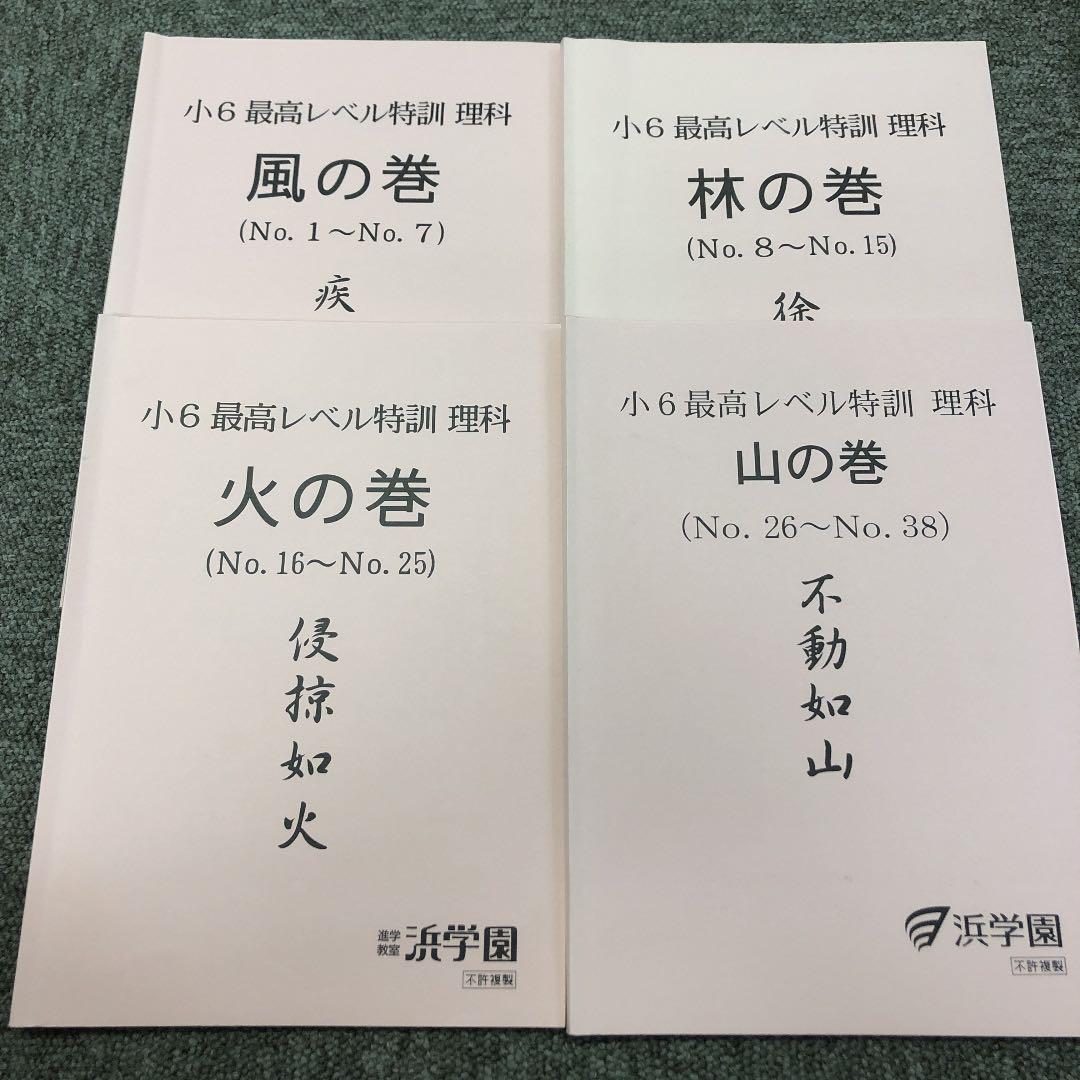 小6 最高レベル特訓 理科
風の巻
(No. 1～No. 7)
疾
小6 最高レベル特訓 理科
林の巻
(No. 8～No. 15)
徐
小6 最高レベル特訓 理科
火の巻
(No. 16～No. 25)
侵
掠
如
火
進学
教室
浜学園
不許複製
小6 最高レベル特訓 理科
山の巻
(No. 26～No. 38)
不
動
如
山
浜学園
不許複製